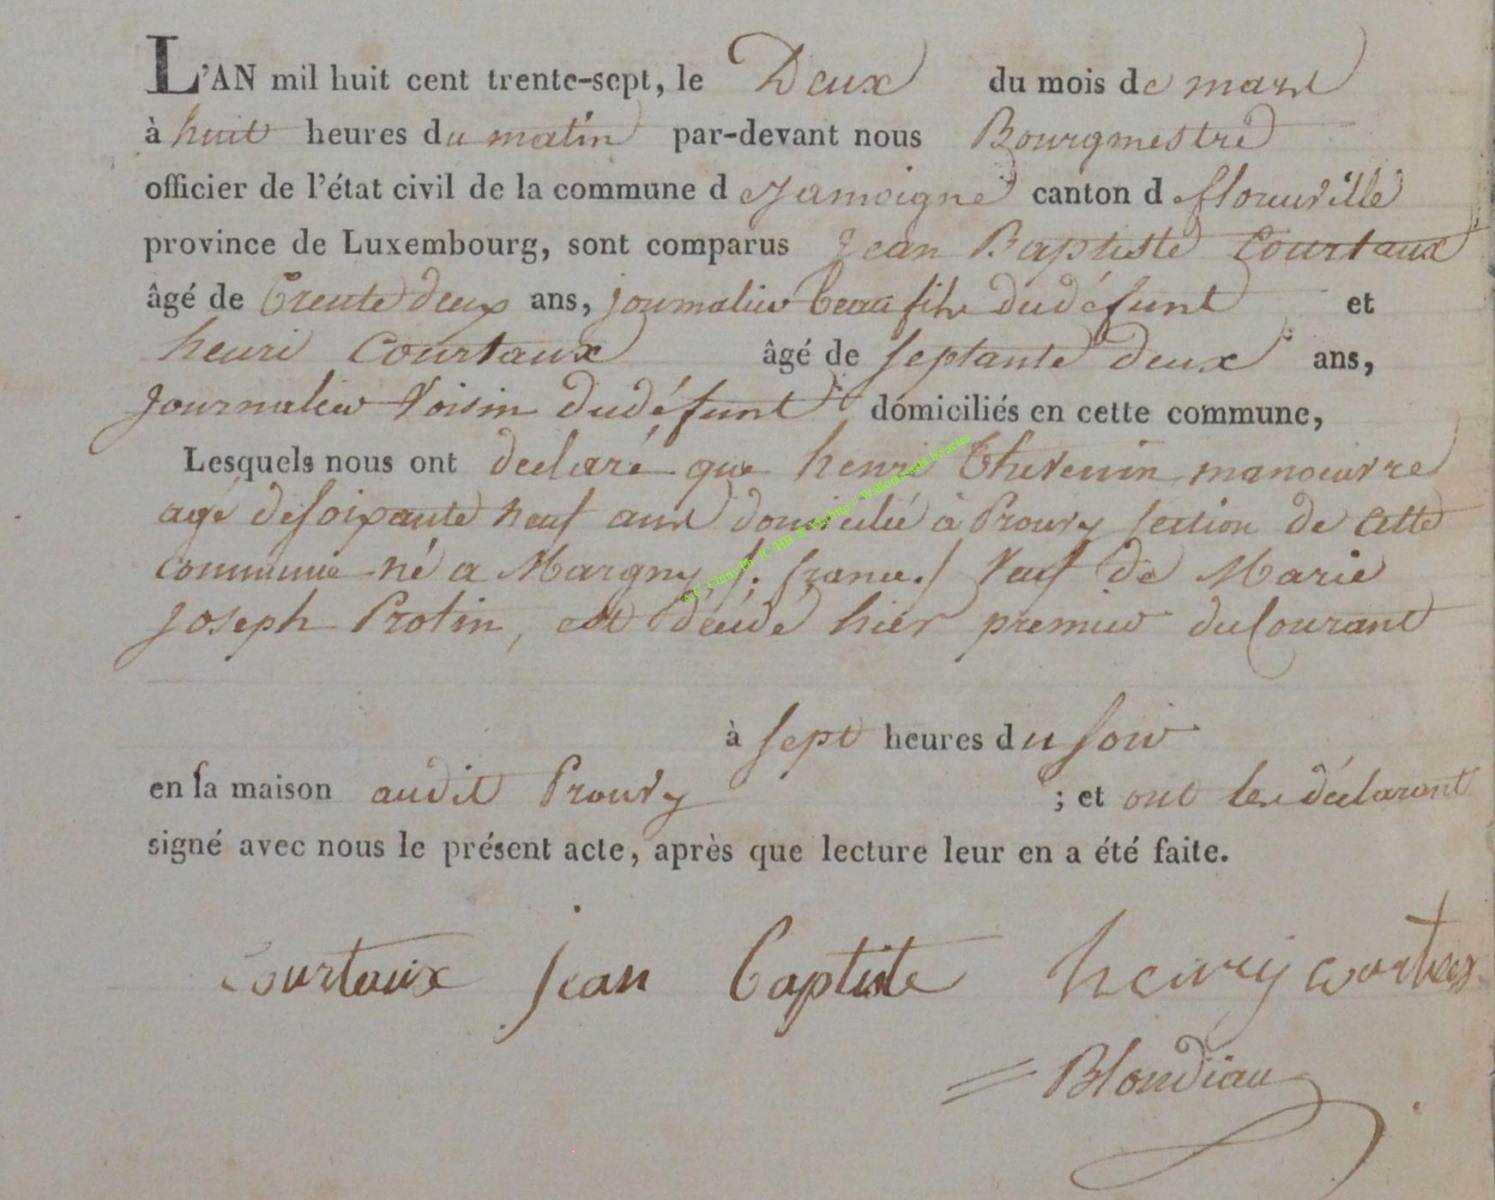 L'AN mil huit cent trente-sept, le Deux du mois de mars
à huit heures du matin par-devant nous Bourgmestre
officier de l'état civil de la commune d e Jamoigne canton d e florenville
province de Luxembourg, sont comparus Jean Baptiste Courtaux
âgé de trente deux ans, journalier beau fils du défunt et
henri Courtaux âgé de septante deux ans,
journalier voisin du défunt domiciliés en cette commune,
Lesquels nous ont declaré que henri Thevenin manoeuvre
agé de soixante neuf ans domicilié à Prouvy section de cette
commune né a Margny /: france./ veuf de Marie
joseph Protin, est décédé hier premier du Courant
à sept heures du soir
en sa maison audit Prouvy ; et ont les déclarant
signé avec nous le présent acte, après que lecture leur en a été faite.
Courtaux jean baptiste henry
Blondiau